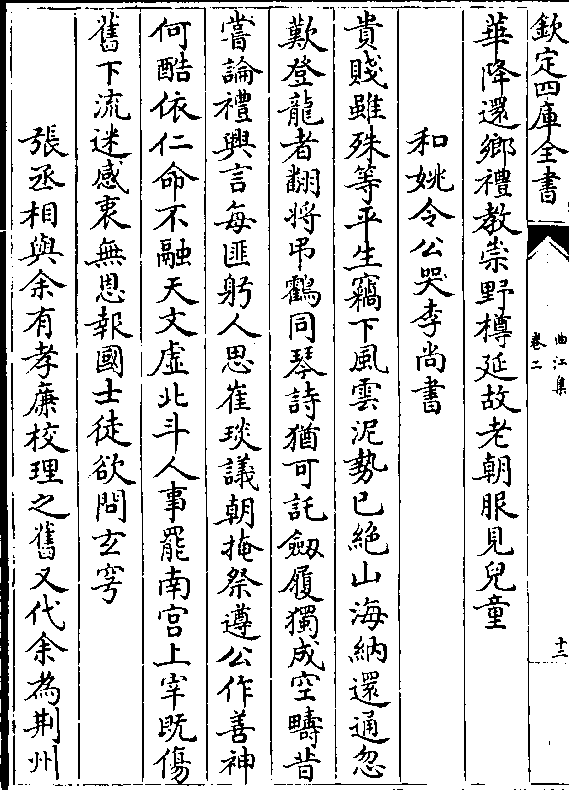 欽定四庫全書
曲江集
卷二
十二
華降還鄉禮教崇野樽延故老朝服見兒童
和姚令公哭李尚書
貴賤雖殊等平生竊下風雲泥勢已絶山海納還通忽
歎登龍者翻將弔鶴同琴詩猶可託劔履獨成空疇昔
嘗論禮興言每匪躬人思崔琰議朝掩祭遵公作善神
何酷依仁命不融天文虚北斗人事罷南宫上宰旣傷
舊下流迷感衷無恩報國士徒欲問𤣥穹
張丞相與余有孝廉校理之舊又代余為荆州